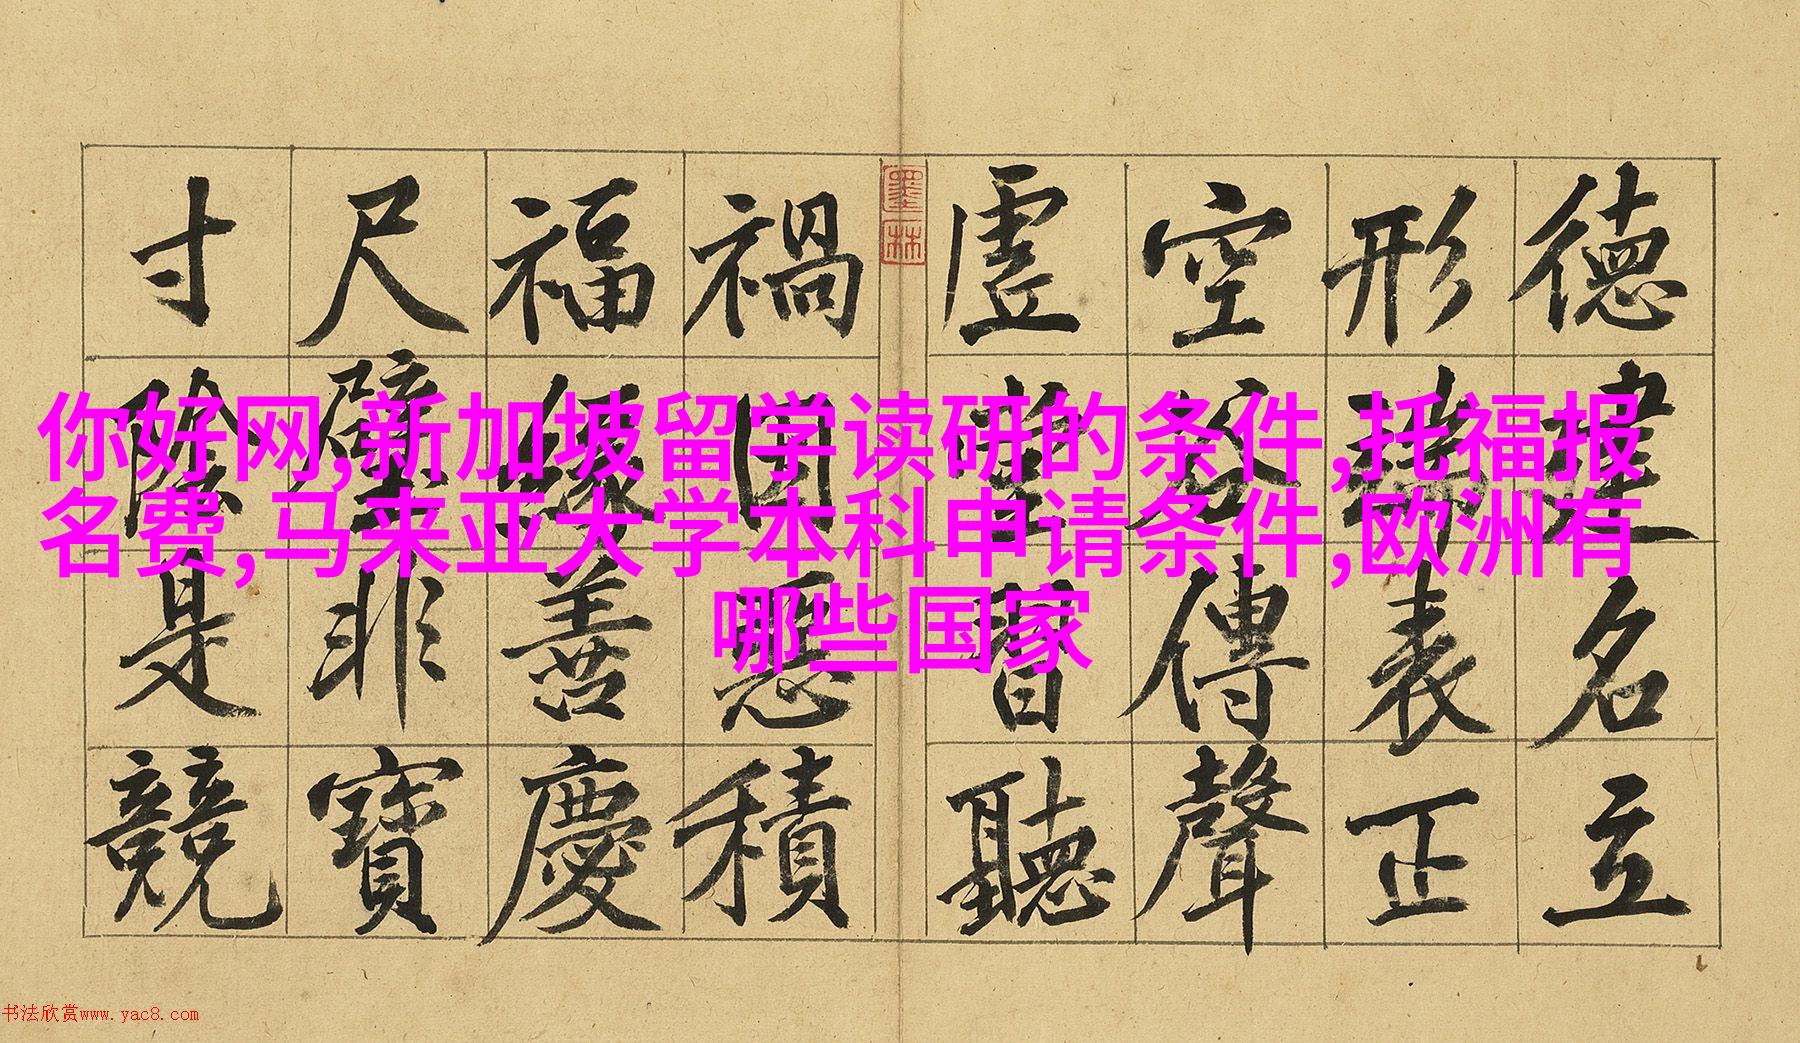 你好网,新加坡留学读研的条件,托福报
名费,马来亚大学本科申请条件,欧洲有
哪些国家
德建名立
形端表正
空谷傳聲
虛堂習聽
墨林
禍因惡積
福緣善慶
尺璧非寶
寸陰是競
书法欣赏www.yac8.com